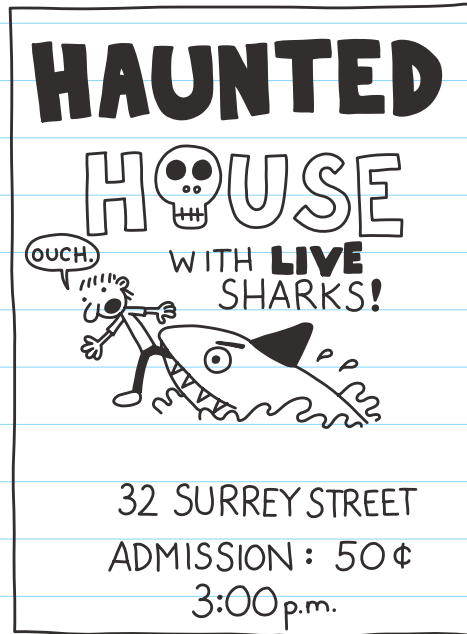 HAUNTED
HOUSE
WITH LIVE
SHARKS!
OUCH.
32 SURREY STREET
ADMISSION: 50¢
3:00 p.m.